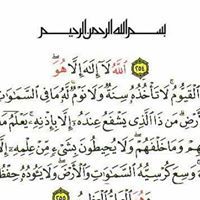 بسم الله الرحمن الرحيم
٢٥٤ ٱللَّهُ لَآ إِلَٰهَ إِلَّا هُوَ
ٱلْقَيُّومُ ۚ لَا تَأْخُذُهُۥ سِنَةٌ وَلَا نَوْمٌ ۚ لَّهُۥ مَا فِى ٱلسَّمَٰوَٰتِ
رْضِ ۗ مَن ذَا ٱلَّذِى يَشْفَعُ عِندَهُۥٓ إِلَّا بِإِذْنِهِۦ ۚ يَعْلَمُ مَ
هِمْ وَمَا خَلْفَهُمْ ۖ وَلَا يُحِيطُونَ بِشَىْءٍ مِّنْ عِلْمِهِۦٓ إِ
وَسِعَ كُرْسِيُّهُ ٱلسَّمَٰوَٰتِ وَٱلْأَرْضَ ۖ وَلَا يَـُٔودُهُۥ حِفْظُ